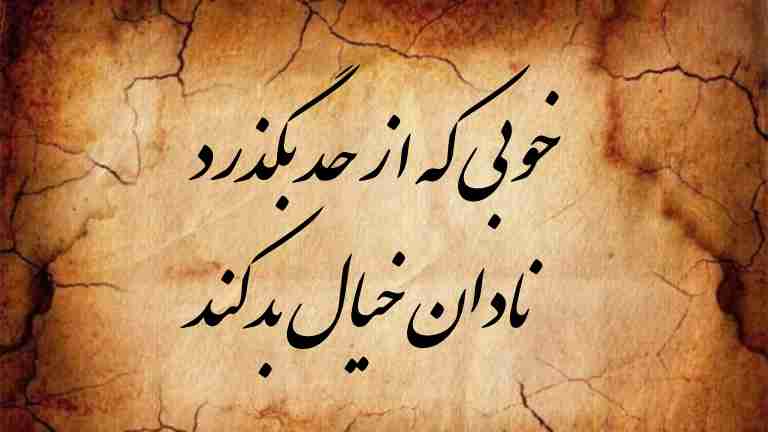 خوبی که از حد بگذرد
نادان خیال بد کند